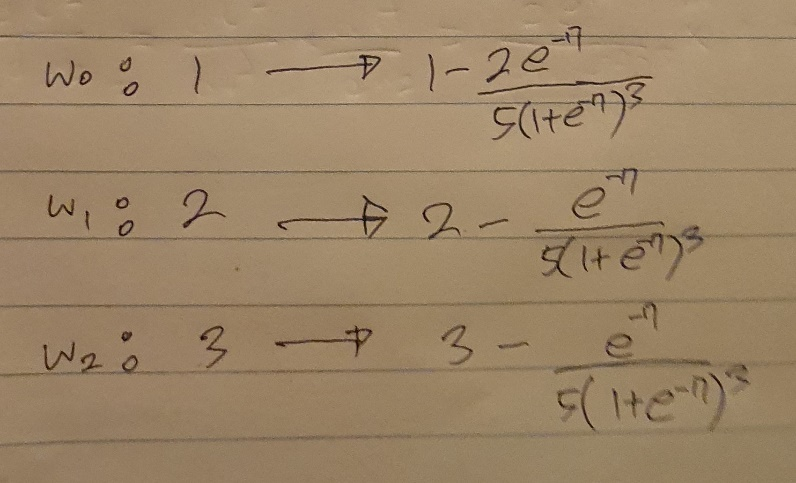 w₀ : 1 ⟶ 1 - 2e⁻¹⁷ / 5(1+e⁻¹⁷)³
w₁ : 2 ⟶ 2 - e⁻¹⁷ / 5(1+e⁻¹⁷)³
w₂ : 3 ⟶ 3 - e⁻¹⁷ / 5(1+e⁻¹⁷)³